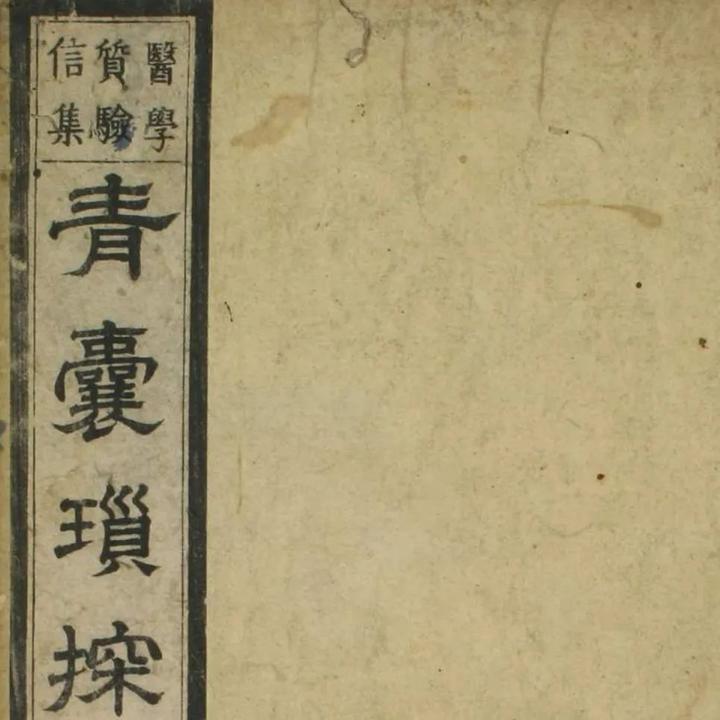 醫學
質驗
信集
青囊瑣探